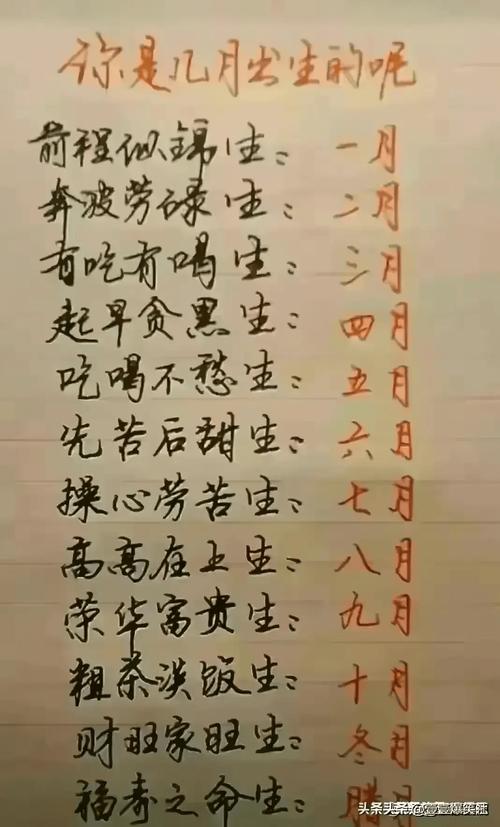 你是几月出生的呢
前程似锦生：一月
奔波劳碌生：二月
有吃有喝生：三月
起早贪黑生：四月
吃喝不愁生：五月
先苦后甜生：六月
操心劳苦生：七月
高高在上生：八月
荣华富贵生：九月
粗茶淡饭生：十月
财旺家旺生：冬月
福寿之命生：腊月
头条